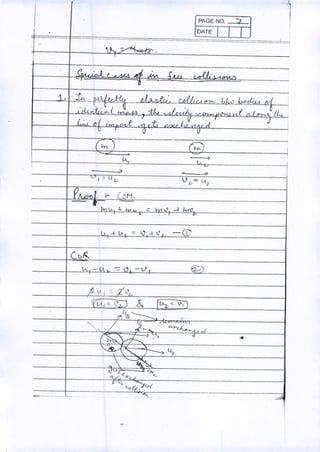 PAGE NO. 2
DATE
Special cases of in few collisions
1. In perfectly elastic collision b/w bodies of
identical mass, the velocity component along the
line of impact gets exchanged.
m m
u₁ u₂
v₁ = u₂ v₂ = u₁
Proof - COM.
mu₁ + mu₂ = mv₁ + mv₂
u₁ + u₂ = v₁ + v₂ — ①
COR
u₁ - u₂ = v₂ - v₁ ②
2u₁ = 2v₂
u₁ = v₂ & u₂ = v₁
remains
unchanged
u₂
gets exchanged
after collision